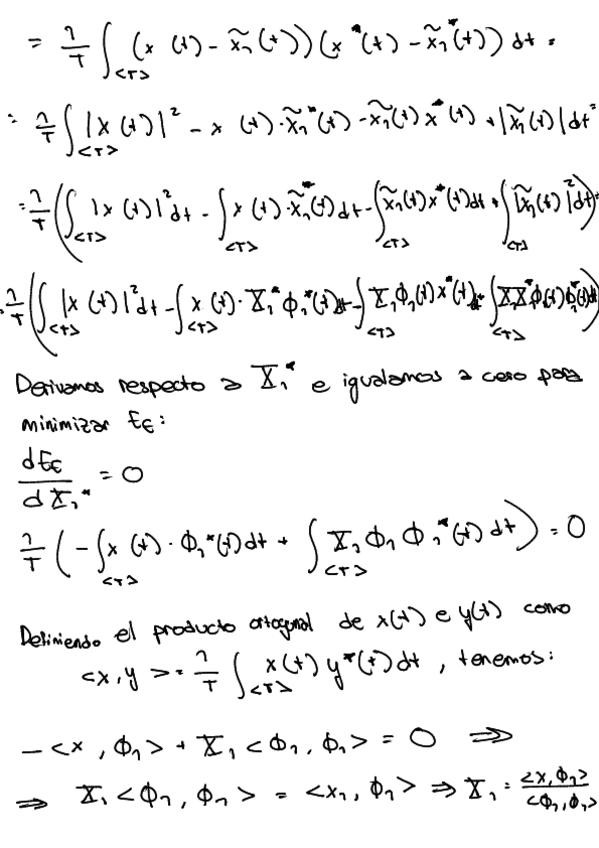 = 1/T ∫<T> (x(t) - x̃₁(t))(x*(t) - x̃₁*(t)) dt =
= 1/T ∫<T> |x(t)|² - x(t)·x̃₁*(t) - x̃₁(t)x*(t) + |x̃₁(t)|dt =
= 1/T (∫<T> |x(t)|²dt - ∫<T> x(t)·x̃₁*(t)dt - ∫<T> x̃₁(t)x*(t)dt + ∫<T> |x̃₁(t)|²dt) =
= 1/T (∫<T> |x(t)|²dt - ∫<T> x(t)·X₁*ϕ₁*(t)dt - ∫<T> X₁ϕ₁(t)x*(t)dt + ∫<T> X₁X₁*ϕ₁(t)ϕ₁*(t)dt)
Derivamos respecto a X₁* e igualamos a cero para
minimizar Eϵ:
dEϵ/dX₁* = 0
1/T (-∫<T> x(t)·ϕ₁*(t)dt + ∫<T> X₁ϕ₁ϕ₁*(t)dt) = 0
Definiendo el producto ortogonal de x(t) e y(t) como
<x,y> = 1/T ∫<T> x(t)y*(t)dt, tenemos:
-<x,ϕ₁> + X₁<ϕ₁,ϕ₁> = 0 ⇒
⇒ X₁<ϕ₁,ϕ₁> = <x₁,ϕ₁> ⇒ X₁ = <x,ϕ₁>/<ϕ₁,ϕ₁>